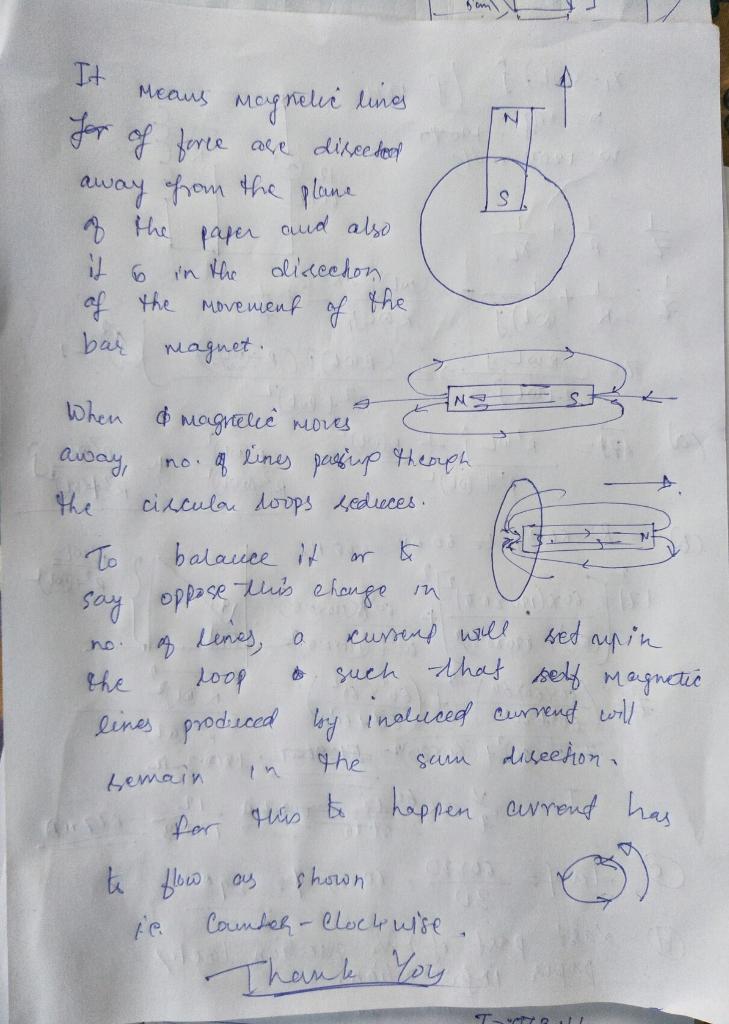 It means magnetic lines
for of force are directed
away from the plane
of the paper and also
it is in the direction
of the movement of the
bar magnet.
N
S
N S
When magnetic moves
away, no. of lines passing through
the circular loops reduces.
S N
To balance it or to
say oppose this change in
no. of lines, a current will set up in
the loop such that self magnetic
lines produced by induced current will
remain in the sam direction.
for this to happen current has
to flow as shown
i.e. Counter-Clockwise.
Thank You